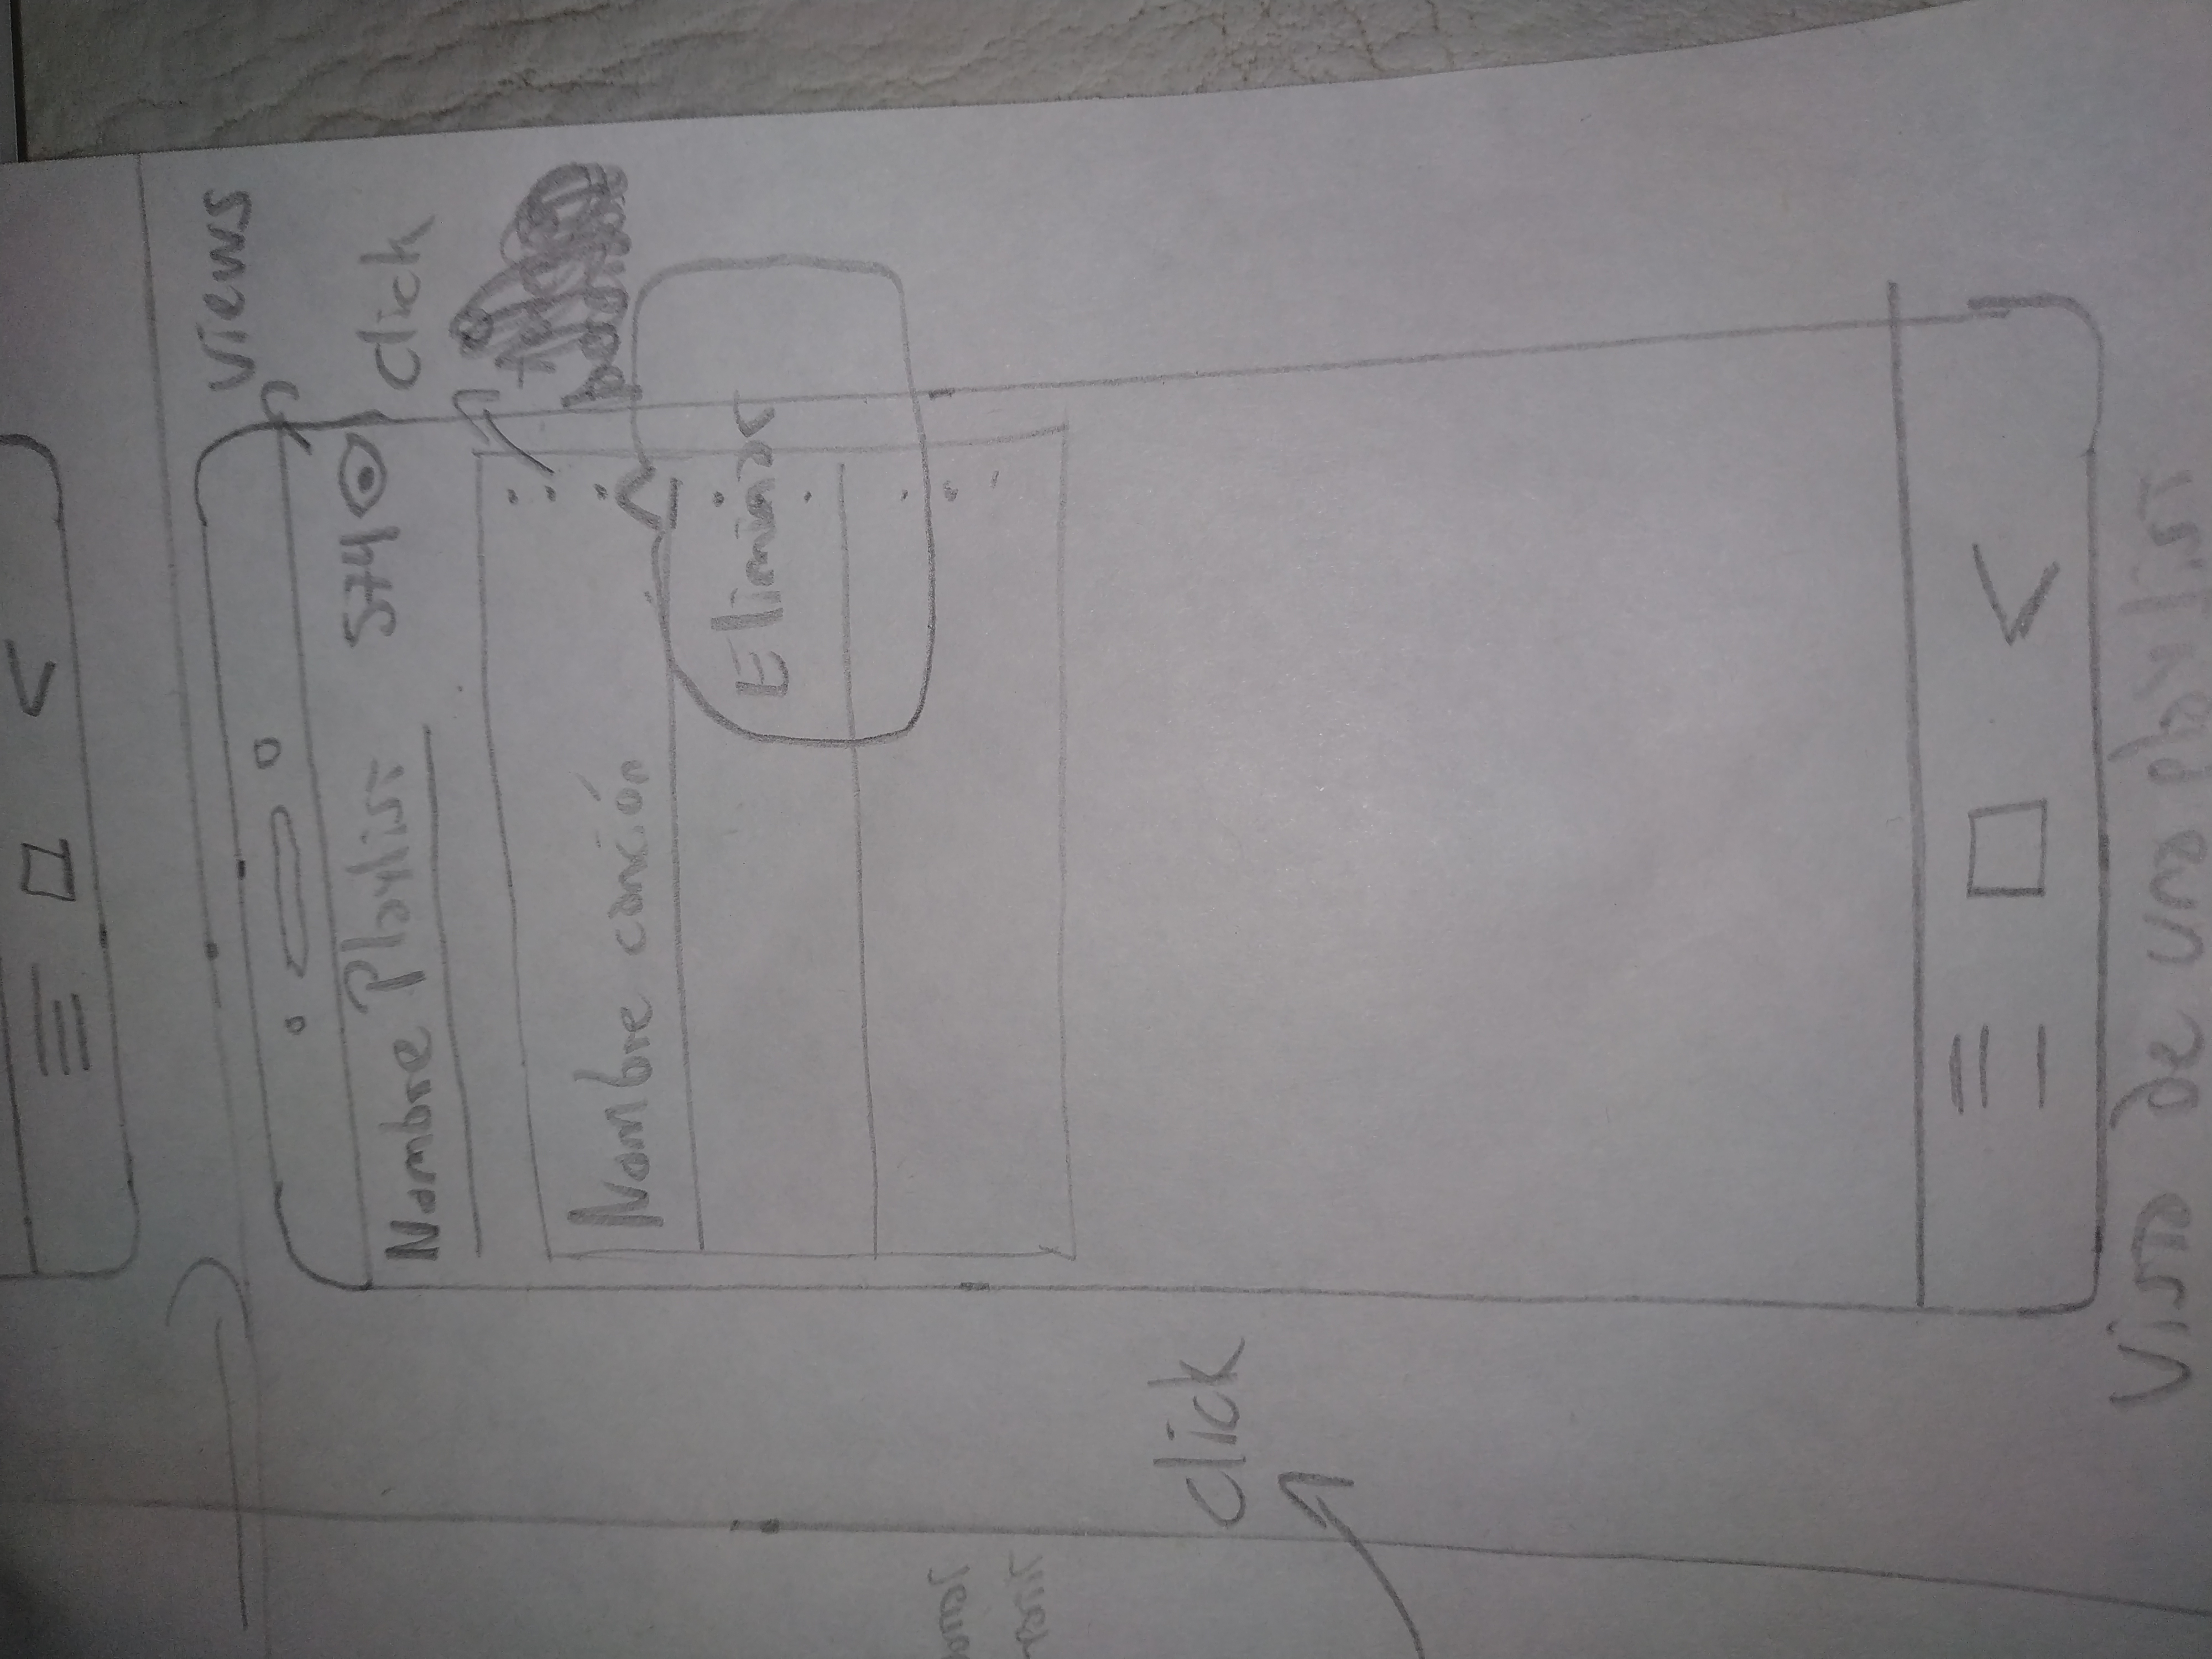 views
Nombre Playlist 574
click
Nombre canción
Eliminar
click
Vista de una playlist